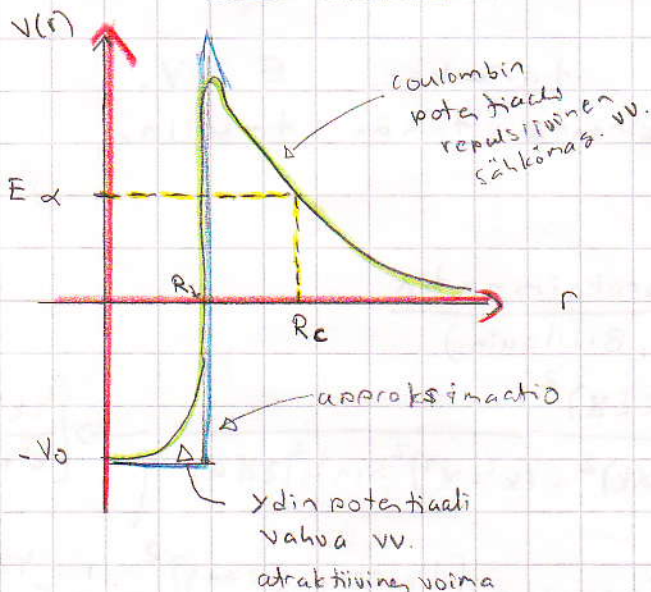 V(r)
coulombin
potentiaali
repulsiivinen
sähkömag. vv.
E α
R
Rc
r
approksimaatio
-V₀
ydinpotentiaali
vahva vv.
atraktiivinen voima